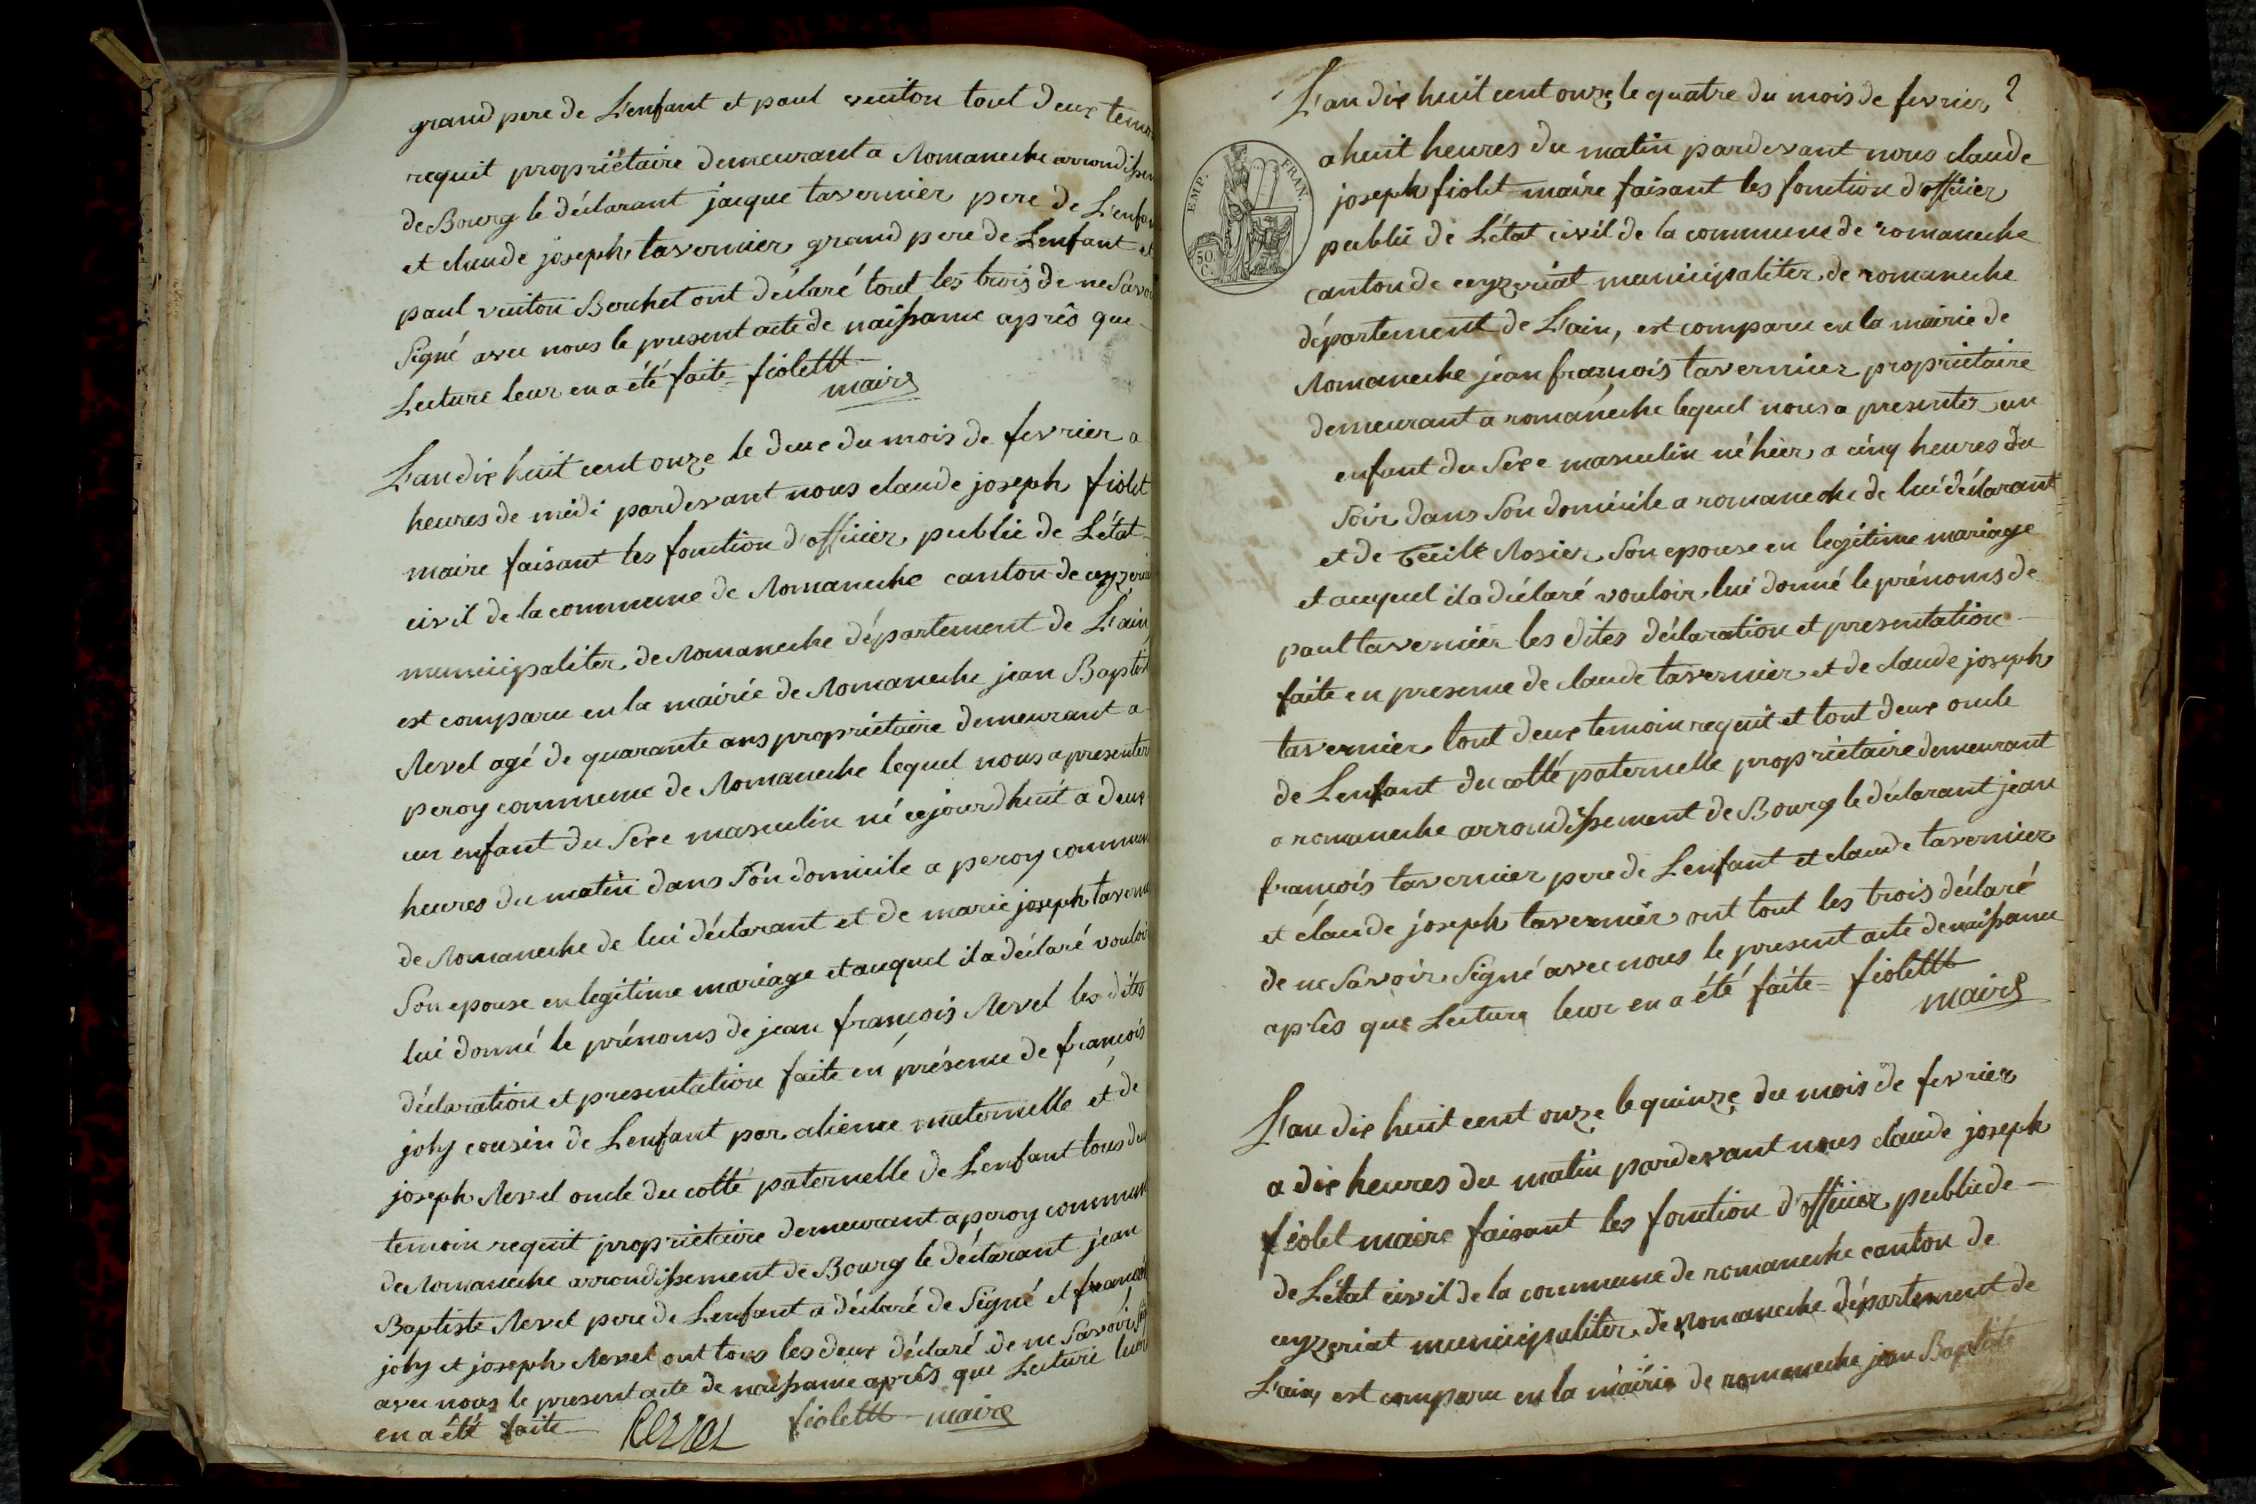 grand pere de Lenfant et paul vuiton tout deux temo
requit propriétaire demeurant a Romaneche arrondissem
de Bourg le déclarant jacque tavernier pere de Lenfan
et claude joseph tavernier grand pere de Lenfant et
paul vuiton Bouchet ont déclaré tout les trois de ne Savoi
Signé avec nous le present acte de naissance après que
Lecture leur en a été faite = fiolettt
maire
L'an dix huit cent onze le deux du mois de fevrier a
heures de midi pardevant nous claude joseph fiolet
maire faisant les fonction d'officier public de L'état
civil de la commune de Romaneche canton de ceyzeria
municipaliter de Romaneche département de L'ain
est comparu en la mairie de Romaneche jean Baptist
Revel agé de quarante ans propriétaire demeurant a
peroy commune de Romaneche lequel nous a presenter
un enfant du Sexe masculin né cejourdhuit a deux
heures du matin dans Son domicile a peroy commune
de Romaneche de lui déclarant et de marie joseph taverni
Son epouse en legitime mariage et auquel il a déclaré vouloir
lui donné le prénoms de jean françois Revel les dites
déclaration et presentation faite en présence de françois
joly cousin de Lenfant par alience maternelle et de
joseph Revel oncle du cotté paternelle de Lenfant tous deu
temoin requit propriétaire demeurant a peroy commune
de Romaneche arrondissement de Bourg le déclarant jean
Baptiste Revel pere de Lenfant a déclaré de Signé et françois
joly et joseph Revel ont tous les deux déclaré de ne Savoir Sig
avec nous le present acte de naissance après que Lecture leur
en a été faite — Revel fiolettt maire
2
L'an dix huit cent onze le quatre du mois de fevrier
EMP. FRAN.
50 C.
a huit heures du matin pardevant nous claude
joseph fiolet maire faisant les fonction d'officier
public de L'état civil de la commune de romaneche
canton de ceyzeriat municipaliter de romaneche
département de L'ain, est comparu en la mairie de
Romaneche jean françois tavernier propriétaire
demeurant a romaneche lequel nous a presenter un
enfant du Sexe masculin né hier a cinq heures du
Soir dans Son domicile a romaneche de lui déclarant
et de Cecile Rosier Son epouse en legitime mariage
et auquel il a déclaré vouloir lui donné le prénoms de
paul tavernier les dites déclaration et presentation
faite en presence de claude tavernier et de claude joseph
tavernier tout deux temoin requit et tout deux oncle
de Lenfant du cotté paternelle propriétaire demeurant
a romaneche arrondissement de Bourg le déclarant jean
françois tavernier pere de Lenfant et claude tavernier
et claude joseph tavernier ont tout les trois déclaré
de ne Savoir Signé avec nous le present acte de naissance
après que Lecture leur en a été faite = fiolettt
maire
L'an dix huit cent onze le quinze du mois de fevrier
a dix heures du matin pardevant nous claude joseph
fiolet maire faisant les fonction d'officier public de
de L'état civil de la commune de romaneche canton de
ceyzeriat municipaliter de Romaneche département de
L'ain, est comparu en la mairie de romaneche jean Baptiste